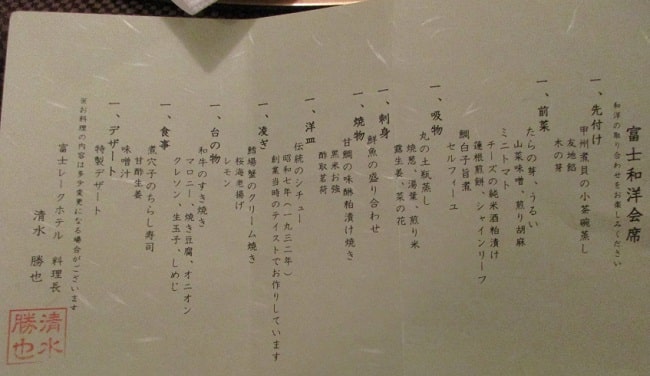 富士和洋会席
和洋の取り合わせをお楽しみください
一、先付け
甲州煮貝の小茶碗蒸し
友地餡
木の芽
一、前菜
たらの芽、うるい
山菜味噌、煎り胡麻
ミニトマト
チーズの純米酒粕漬け
蓮根煎餅、シャインリーフ
鯛白子旨煮
セルフィーユ
一、吸物
丸の土瓶蒸し
焼葱、湯葉、煎り米
露生姜、菜の花
一、刺身
鮮魚の盛り合わせ
一、焼物
甘鯛の味醂粕漬け焼き
黒米お強
酢取茗荷
一、洋皿
伝統のシチュー
昭和七年(一九三二年)
創業当時のテイストでお作りしています
一、凌ぎ
鱈場蟹のクリーム焼き
桜海老揚げ
レモン
一、台の物
和牛のすき焼き
マロニー、焼き豆腐、オニオン
クレソン、生玉子、しめじ
一、食事
煮穴子のちらし寿司
甘酢生姜
味噌汁
一、デザート
特製デザート
※お料理の内容は多少変更になる場合がございます
富士レークホテル 料理長
清水 勝也
清水
勝也